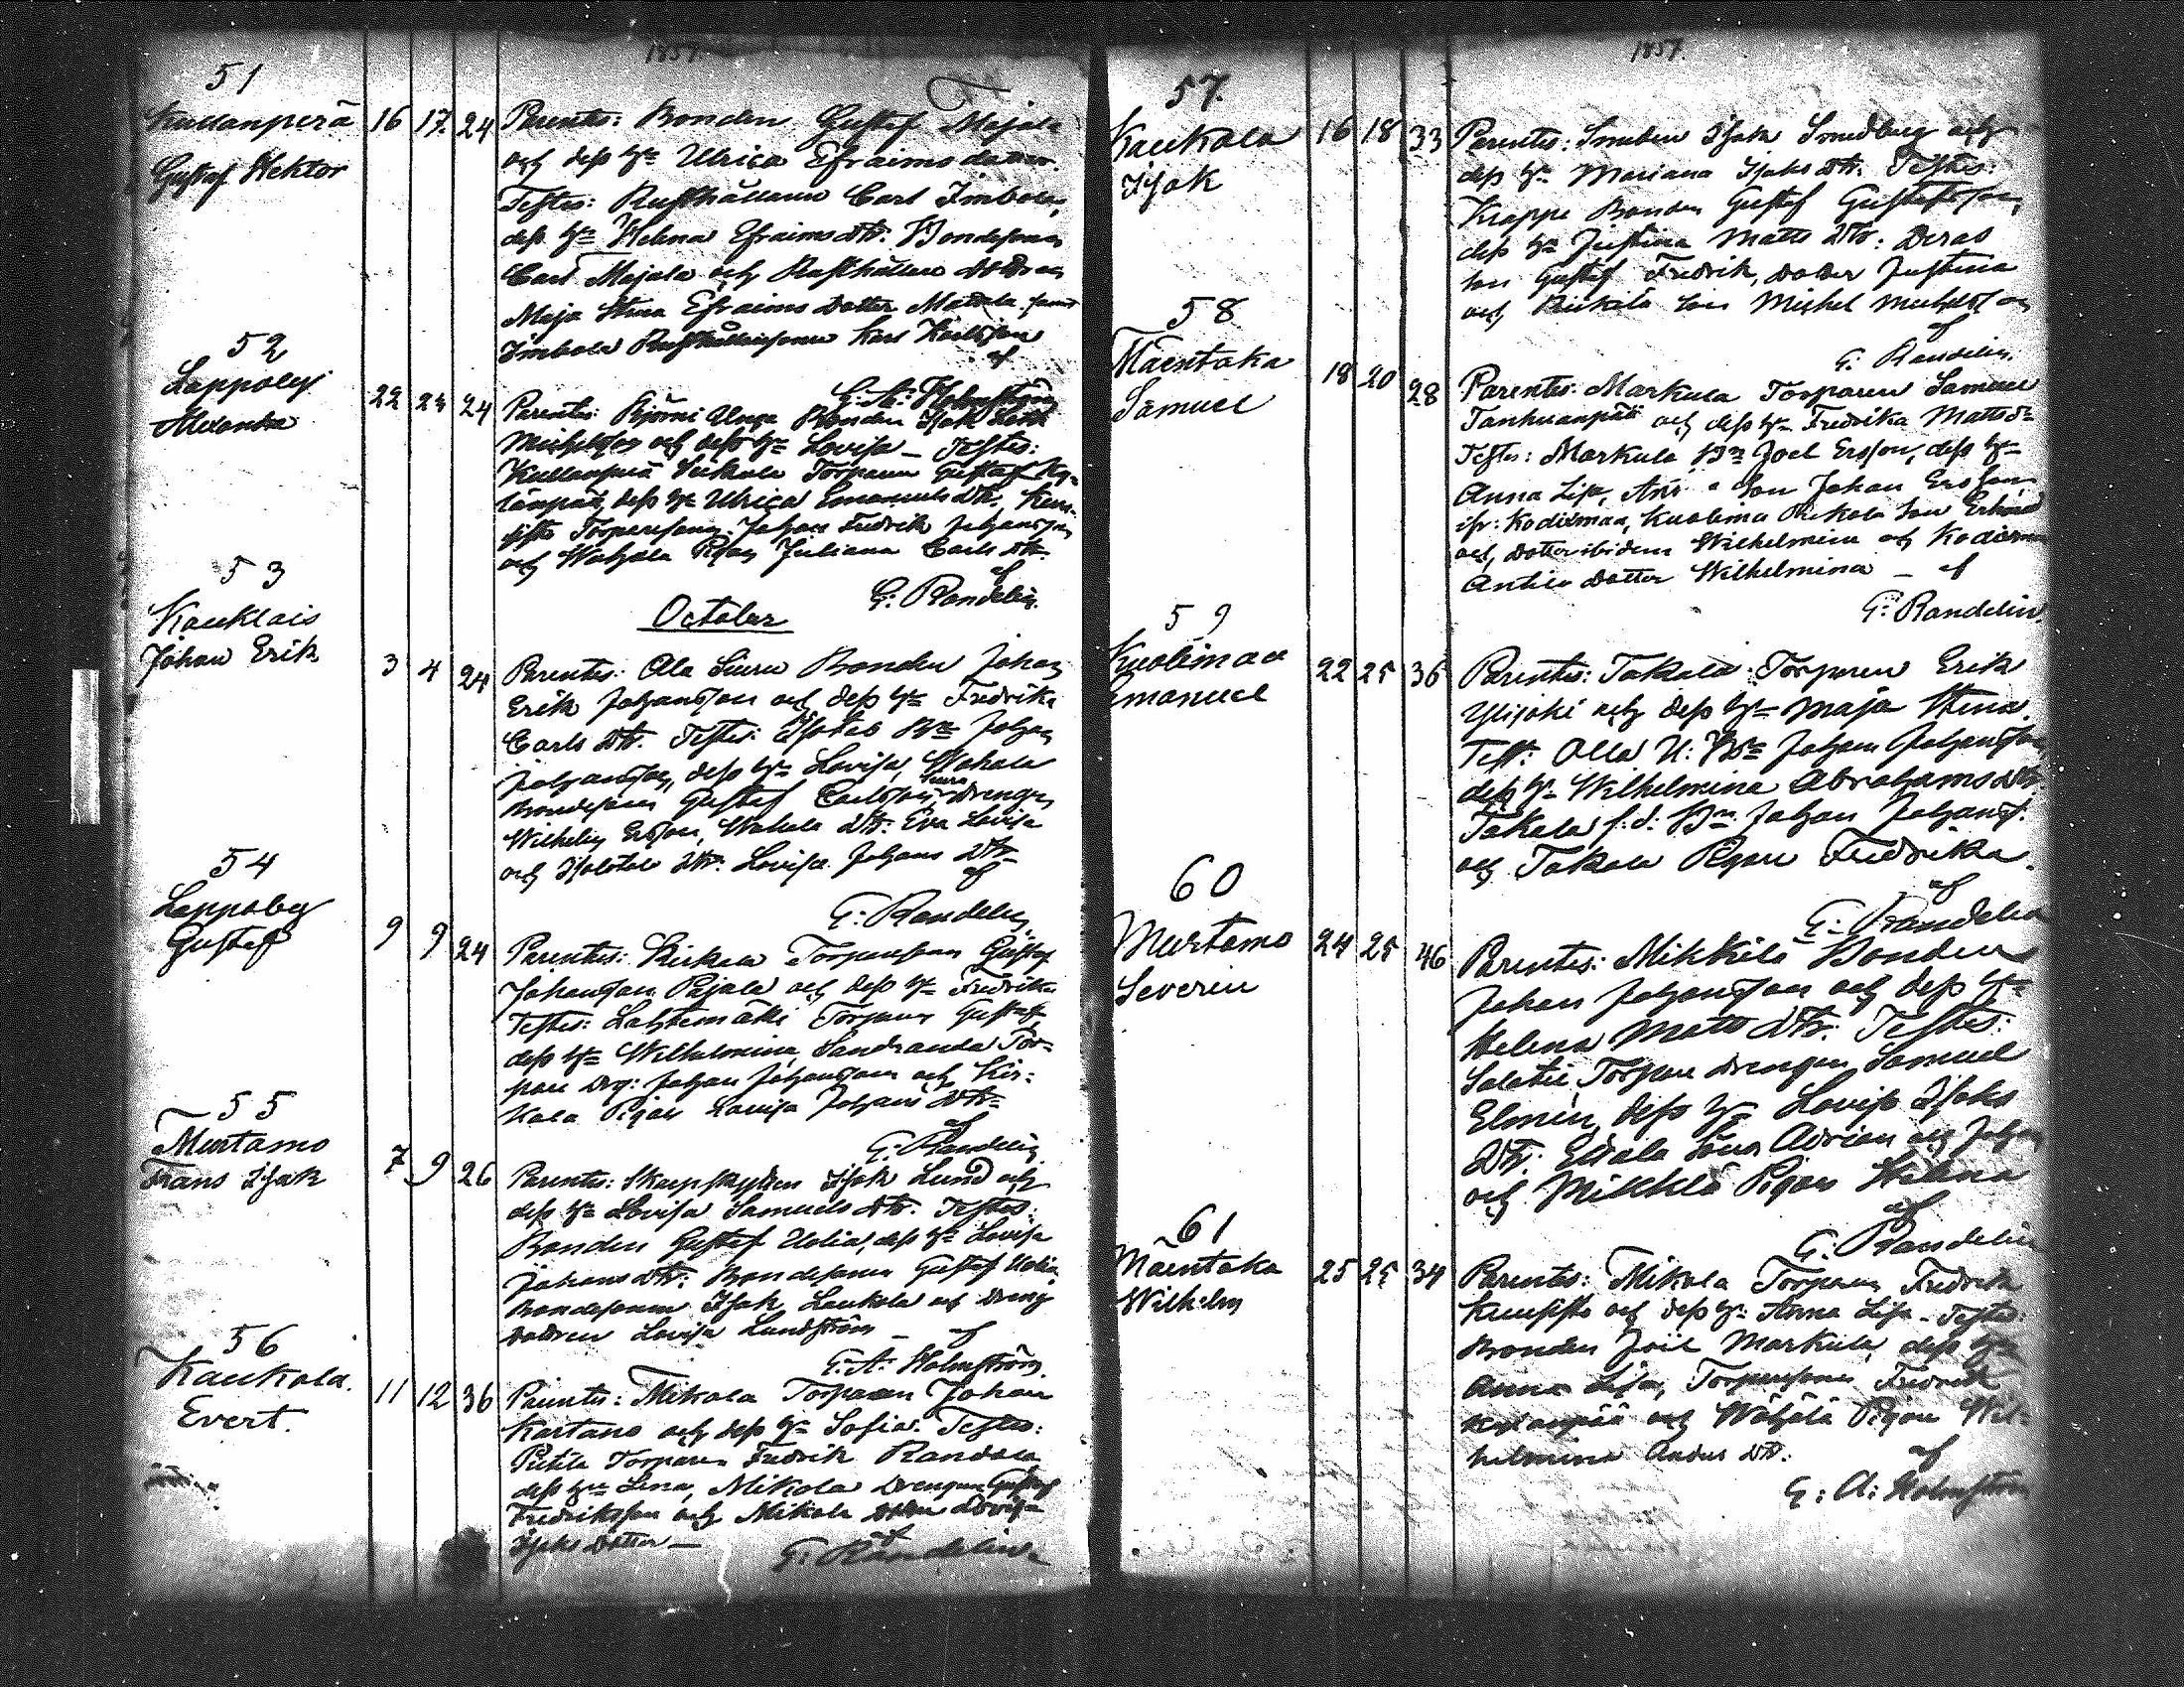 1857.
51
Kullanperä 16 17. 24 Parentes: Bonden Gustaf Majala
Gustaf Hektor
och dess H:u Ulrica Efraims dotter.
Testes: Rusthållaren Carl Imbola,
dess H:u Helena Efraims dtr. Bondesonen
Carl Majala och Rusthållare dottren
Maja Stina Efraims dotter Mattala samt
Imbola Rusthållaresonen Karl Karlsson
af
G. A. Holmström
52
Lappoby 22 24 24 Parentes: Björni Unge Bonden Isak
Alexandra
Michelsson och dess H:u Lovisa – Testes:
Kullanperä Torparen Gustaf
dess H:u Ulrica Emanuels dtr,
Torparesonen Johan Fredrik Johansson
och Wahala Pigan Juliana Carls dtr.
af
G: Randelin.
October
53
Kauklais
Johan Erik 3 4 24 Parentes: Ala Siuru Bonden Johan
Erik Johansson och dess H:u Fredrika
Carls dtr. Testes: B:n Johan
Johansson, dess H:u Lovisa, Wahala
Bondesonen Gustaf Carlsson, Drengen
Wilhelm Ersson, Wahala dtr: Eva Lovisa
och dtr. Lovisa Johans dtr
af
G: Randelin
54
Lappoby
Gustaf 9 9 24 Parentes: Torparesonen Gustaf
Johansson Pajala och dess H:u Fredrika
Testes: Lahtemäki Torparen Gustaf,
dess H:u Wilhelmina, Sandranda Tor-
pare Drg: Johan Johansson och Kir-
kala Pigan Lovisa Johans dtr
af
G: Randelin
55
Murtamo
Frans Isak 7 9 26 Parentes: Skarpskytten Isak Lund och
dess H:u Lovisa Samuels dtr. Testes:
Bonden Gustaf Uolia, dess H:u Lovisa
Johans dtr. Bondesonen Gustaf Uolia
Bondesonen Isak Laukola och Dreng
dottren Lovisa Lundström – af
G: A: Holmström.
56
Kaukola.
Evert. 11 12 36 Parentes: Mikola Torparen Johan
Kartano och dess H:u Sofia. Testes:
Torparen Fredrik Randala
dess H:u Lena, Mikola Drengen Gustaf
Fredriksson och Mikola dottren Lovisa
Isaks dotter –
af
G: Randelin.
1857.
57.
Kaukola 16 18 33 Parentes: Smeden Isak Smedberg och
Isak
dess H:u Mariana Isaks dtr. Testes:
Krappe Bonden Gustaf Gustafsson,
dess H:u Justina Matts dtr: Deras
son Gustaf Fredrik, dotter Justina
och son Michel Michelsson
af
G. Randelin.
58
Mäentaka 18 20 28 Parentes: Markula Torparen Samuel
Samuel
Tanhuanpää och dess H:u Fredrika Matts d:r
Testes: Markula B:n Joel Ersson, dess H:u
Anna Lisa, son Johan Ersson,
Kodismaa, Kuolimaa son Erhard
och dotter ibidem Wilhelmina och
Antila dotter Wilhelmina – af
G: Randelin.
59
Kuolimaa
Emanuel 22 25 36 Parentes: Takala Torparen Erik
Ylijoki och dess H:u Maja Stina.
Test: Olla U: B:n Johan Johansson
dess H:u Wilhelmina Abrahams dtr.
Takala f: d: B:n Johan Johanss:
och Takala Pigan Fredrika.
af
G: Randelin
60
Murtamo 24 25 46 Parentes: Mikkilä Bonden
Severin
Johan Johansson och dess H:u
Helena Matts dtr: Testes:
Torpare drengen Samuel
Elmin, dess H:u Lovisa Isaks
dtr. Eskala Söner Adrian och Johan
och Mikkilä Pigan Helena
af
G. Randelin
61
Mäentaka 25 25 34 Parentes: Mikola Torparen Fredrik
Wilhelm
Kuusisto och dess H:u Anna Lisa. Testes:
Bonden Joel Markula, dess H:u
Anna Lisa, Torparesonen Fredrik
och Wähälä Pigan Wil-
helmina Anders dtr.
af
G: A: Holmström